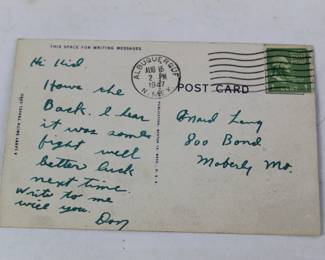 THIS SPACE FOR WRITING MESSAGES
Hi Kid.
Hows the
Back. I hear
it was some
fight well
better luck
next time.
Write to me
will you.
Don
ALBUQUERQUE
AUG 15
2 PM
1947
N. MEX
POST CARD
Maid Lang
800 Bond
Moberly Mo.